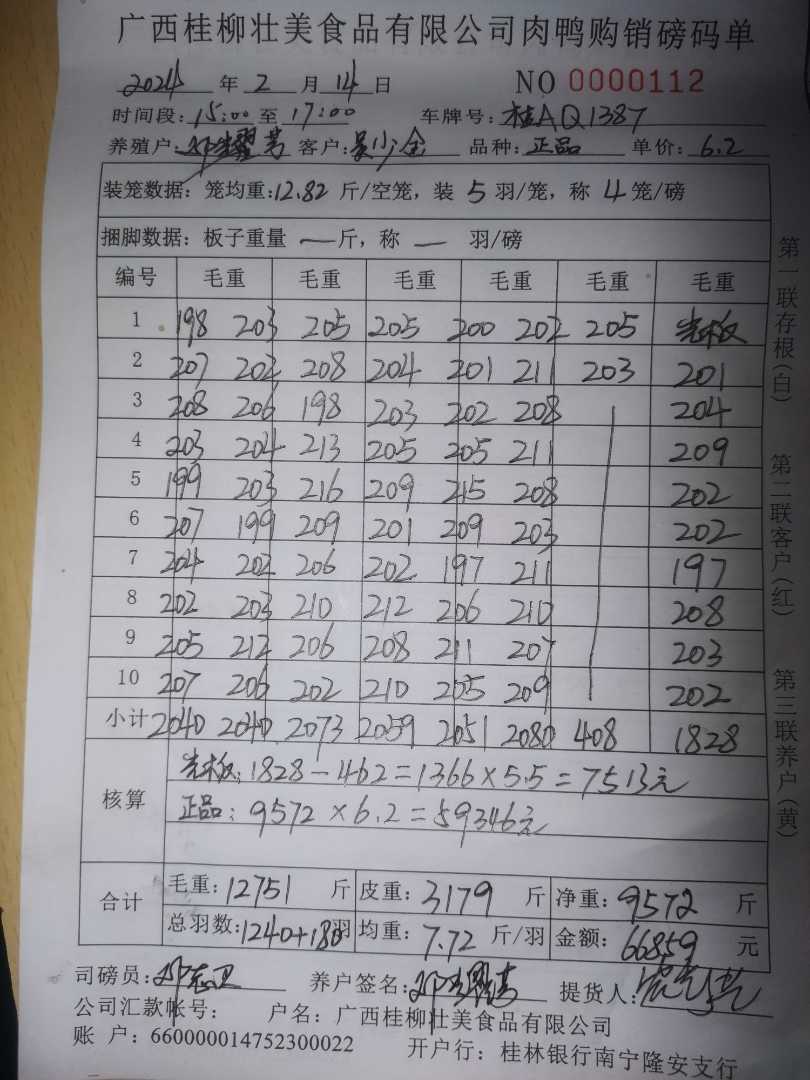 广西桂柳壮美食品有限公司肉鸭购销磅码单
2024 年 2 月 14 日 NO 0000112
时间段:15:00 至 17:00 车牌号:桂AQ1387
养殖户: 客户:吴少全 品种:正品 单价:6.2
装笼数据:笼均重:12.82 斤/空笼,装 5 羽/笼,称 4 笼/磅
捆脚数据:板子重量 — 斤,称 — 羽/磅
编号 毛重 毛重 毛重 毛重 毛重 毛重
1 198 203 205 205 200 202 205 光板
2 207 202 208 204 201 211 203 201
3 208 206 198 203 202 208 204
4 203 204 213 205 205 211 209
5 199 203 216 209 215 208 202
6 207 199 209 201 209 203 202
7 204 202 206 202 197 211 197
8 202 203 210 212 206 210 208
9 205 212 206 208 211 207 203
10 207 206 202 210 205 209 202
小计 2040 2040 2073 2059 2051 2080 408 1828
核算 光板:1828-462=1366×5.5=7513元
正品:9572×6.2=59346元
合计 毛重:12751 斤 皮重:3179 斤 净重:9572 斤
总羽数:1240+180羽 均重:7.72 斤/羽 金额:66859 元
司磅员:邓志卫 养户签名: 提货人:
公司汇款帐号: 户名:广西桂柳壮美食品有限公司
账 户:660000014752300022 开户行:桂林银行南宁隆安支行
第一联存根(白)
第二联客户(红)
第三联养户(黄)